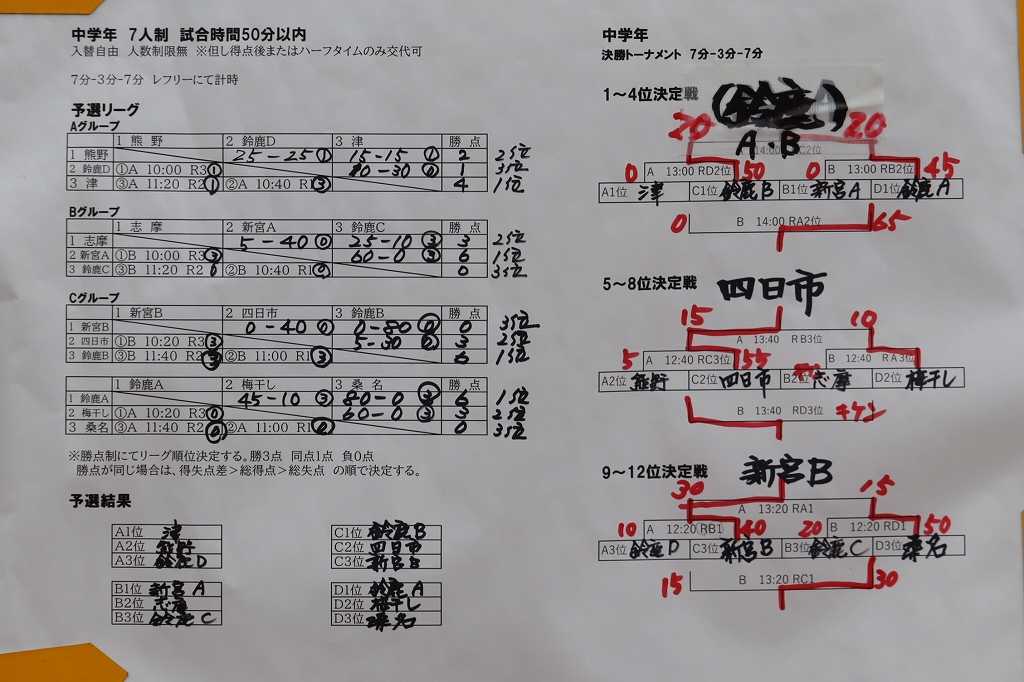 中学年 7人制 試合時間50分以内
入替自由 人数制限無 ※但し得点後またはハーフタイムのみ交代可
7分-3分-7分 レフリーにて計時
予選リーグ
Aグループ
1 熊野 2 鈴鹿D 3 津 勝 点
1 熊野 25-25① 15-15① 2 2位
2 鈴鹿D ①A 10:00 R3① 80-30⓪ 1 3位
3 津 ③A 11:20 R2① ②A 10:40 R1③ 4 1位
Bグループ
1 志摩 2 新宮A 3 鈴鹿C 勝 点
1 志摩 5-40⓪ 25-10③ 3 2位
2 新宮A ①B 10:00 R3③ 60-0③ 6 1位
3 鈴鹿C ③B 11:20 R2 0 ②B 10:40 R1⓪ 0 3位
Cグループ
1 新宮B 2 四日市 3 鈴鹿B 勝 点
1 新宮B 0-40⓪ 0-80⓪ 0 3位
2 四日市 ①B 10:20 R3③ 5-30⓪ 3 2位
3 鈴鹿B ③B 11:40 R2③ ②B 11:00 R1③ 6 1位
1 鈴鹿A 2 梅干し 3 桑名 勝 点
1 鈴鹿A 45-10③ 80-0③ 6 1位
2 梅干し ①A 10:20 R3⓪ 60-0③ 3 2位
3 桑名 ③A 11:40 R2⓪ ②A 11:00 R1⓪ 0 3位
※勝点制にてリーグ順位決定する。勝3点 同点1点 負0点
勝点が同じ場合は、得失点差>総得点>総失点 の順で決定する。
予選結果
A1位 津
A2位 熊野
A3位 鈴鹿D
B1位 新宮A
B2位 志摩
B3位 鈴鹿C
C1位 鈴鹿B
C2位 四日市
C3位 新宮B
D1位 鈴鹿A
D2位 梅干し
D3位 桑名
中学年
決勝トーナメント 7分-3分-7分
1～4位決定戦
(鈴鹿)
A・B
20 20
0 A 13:00 RD2位 50 0 B 13:00 RB2位 45
A1位 津 C1位 鈴鹿B B1位 新宮A D1位 鈴鹿A
0 B 14:00 RA2位 65
5～8位決定戦 四日市
15 A 13:40 RB3位 10
5 A 12:40 RC3位 55 B 12:40 RA3位
A2位 熊野 C2位 四日市 B2位 志摩 D2位 梅干し
B 13:40 RD3位 キケン
9～12位決定戦 新宮B
30 A 13:20 RA1 15
10 A 12:20 RB1 40 20 B 12:20 RD1 50
A3位 鈴鹿D C3位 新宮B B3位 鈴鹿C D3位 桑名
15 B 13:20 RC1 30